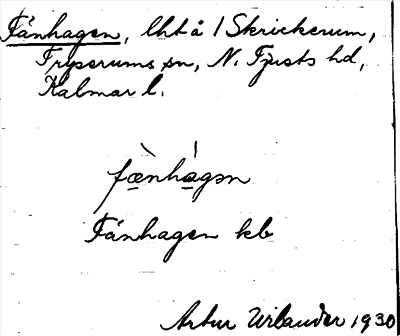 Fänhagen, lht å 1 Skrickerum,
Tryserums sn, N. Tjusts hd,
Kalmar l.
fæ̀nhágən
Fänhagen kb
Artur Wilander 1930